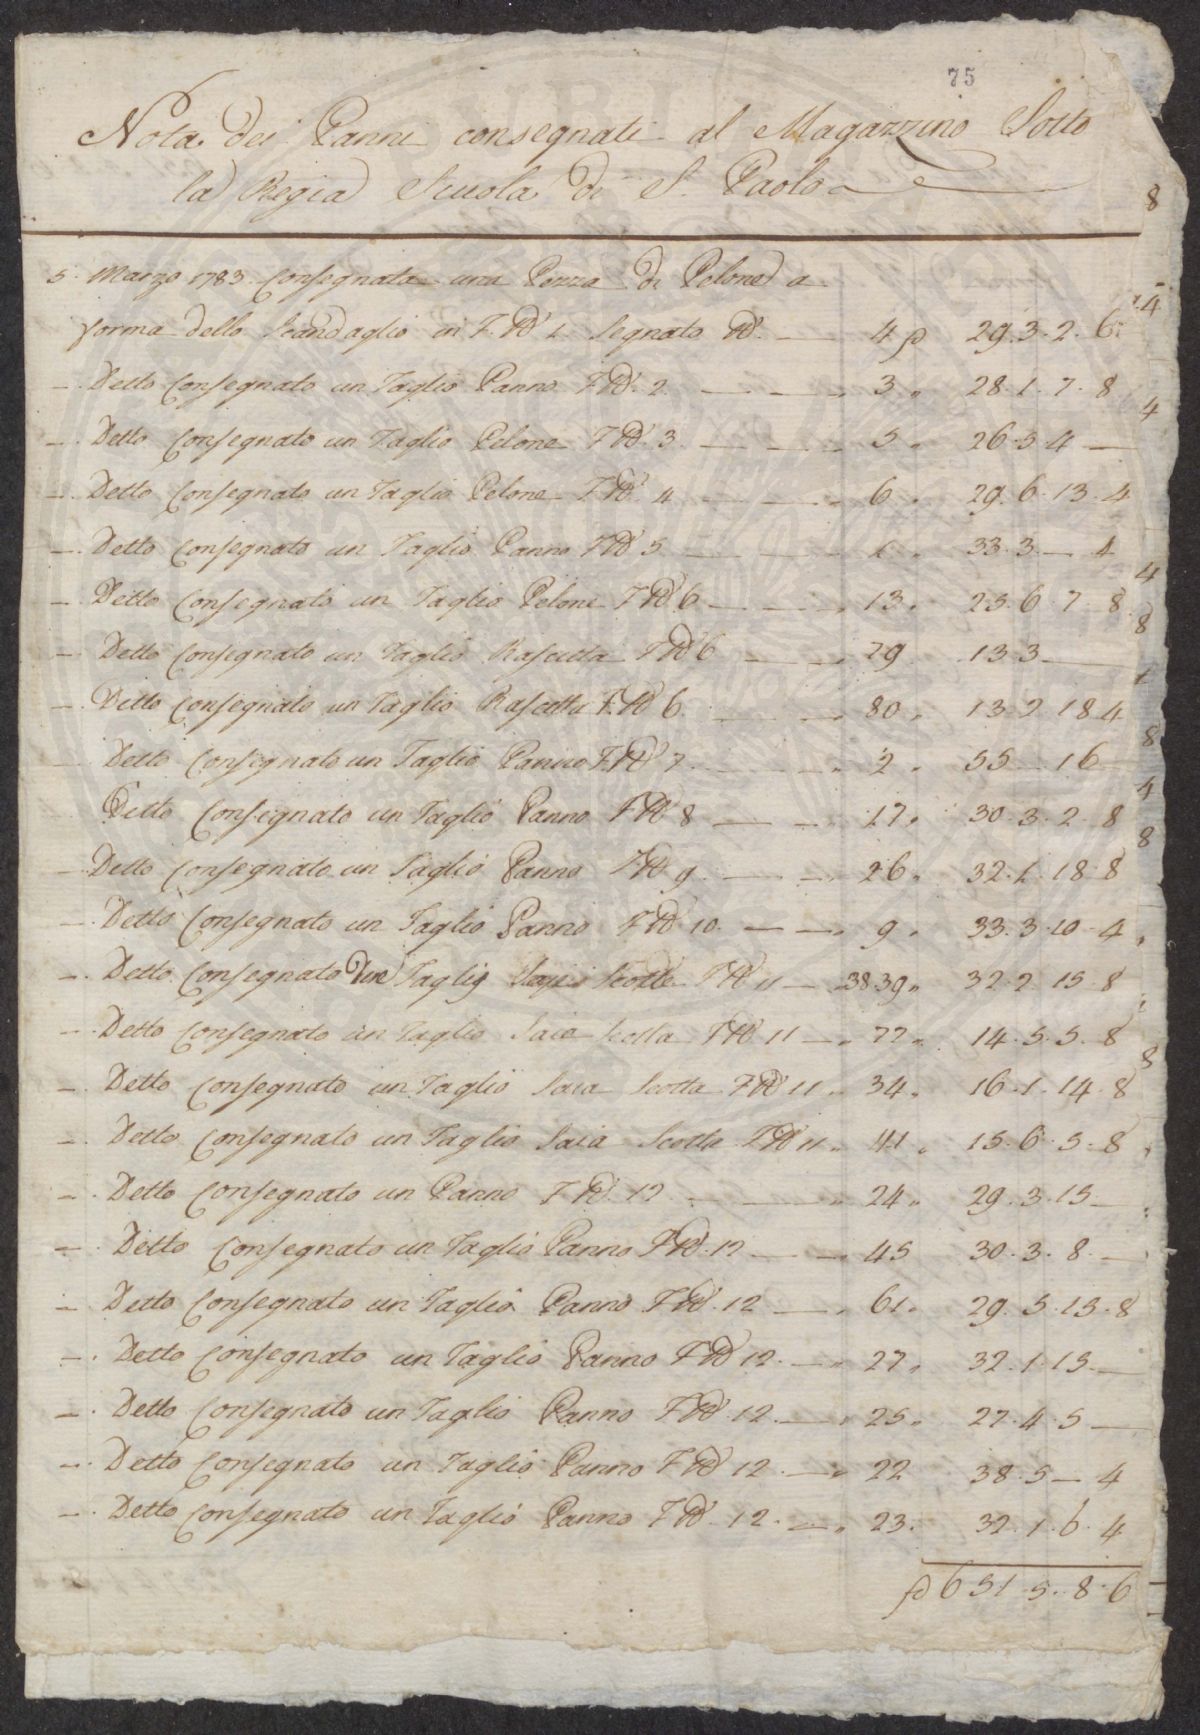 75
Nota dei Panni consegnati al Magazzino Sotto
la Regia Scuola di S. Paolo
5. Marzo 1783. Consegnata una Pezza di Pelone a
forma dello Scandaglio in F. N° 1. Segnato N°. — 4 p 29. 3. 2. 6.
—. Detto Consegnato un Taglio Panno F N°. 2. — 3 " 28. 1. 7. 8
—. Detto Consegnato un Taglio Pelone F N°. 3. — 5 " 26. 5. 4 —
—. Detto Consegnato un Taglio Pelone F N°. 4 — 6 " 29. 6. 13. 4
—. Detto Consegnato un Taglio Panno F N° 5 — 1 " 33. 3. — 4
—. Detto Consegnato un Taglio Pelone F N° 6 — 13 " 25. 6. 7. 8
—. Detto Consegnato un Taglio Rascetta F N° 6 — 79 13. 3 —
—. Detto Consegnato un Taglio Rascetta F. N° 6. — 80 " 13. 2. 18. 4
Detto Consegnato un Taglio Panno F. N° 7. — 2 " 55 — 16 —
Detto Consegnato un Taglio Panno F N° 8 — 17 " 30. 3. 2. 8
—. Detto Consegnato un Taglio Panno F N° 9. — 26 " 32. 1. 18. 8
—. Detto Consegnato un Taglio Panno F N° 10. — 9 " 33. 3. 10. 4
—. Detto Consegnato Due Taglij Scotte F N° 11 — 38. 39 " 32. 2. 15. 8
—. Detto Consegnato un Taglio Saia Scotta F N° 11 — 77 " 14. 5. 5. 8
—. Detto Consegnato un Taglio Saia Scotta F N° 11 " 34 " 16. 1. 14. 8
—. Detto Consegnato un Taglio Saia Scotta F N° 11 " 41 " 15. 6. 5. 8
—. Detto Consegnato un Panno F N°. 12 — 24 " 29. 3. 15 —
—. Detto Consegnato un Taglio Panno F N°. 12 — 45 30. 3. 8. —
—. Detto Consegnato un Taglio Panno F N°. 12 — 61 " 29. 5. 15. 8
—. Detto Consegnato un Taglio Panno F N° 12. — 27 " 32. 1. 15 —
—. Detto Consegnato un Taglio Panno F N° 12. — 25 " 27. 4. 5 —
—. Detto Consegnato un Taglio Panno F N° 12. — 22 38. 5 — 4
—. Detto Consegnato un Taglio Panno F N°. 12. — 23. 32. 1. 6. 4
p 651. 5. 8. 6